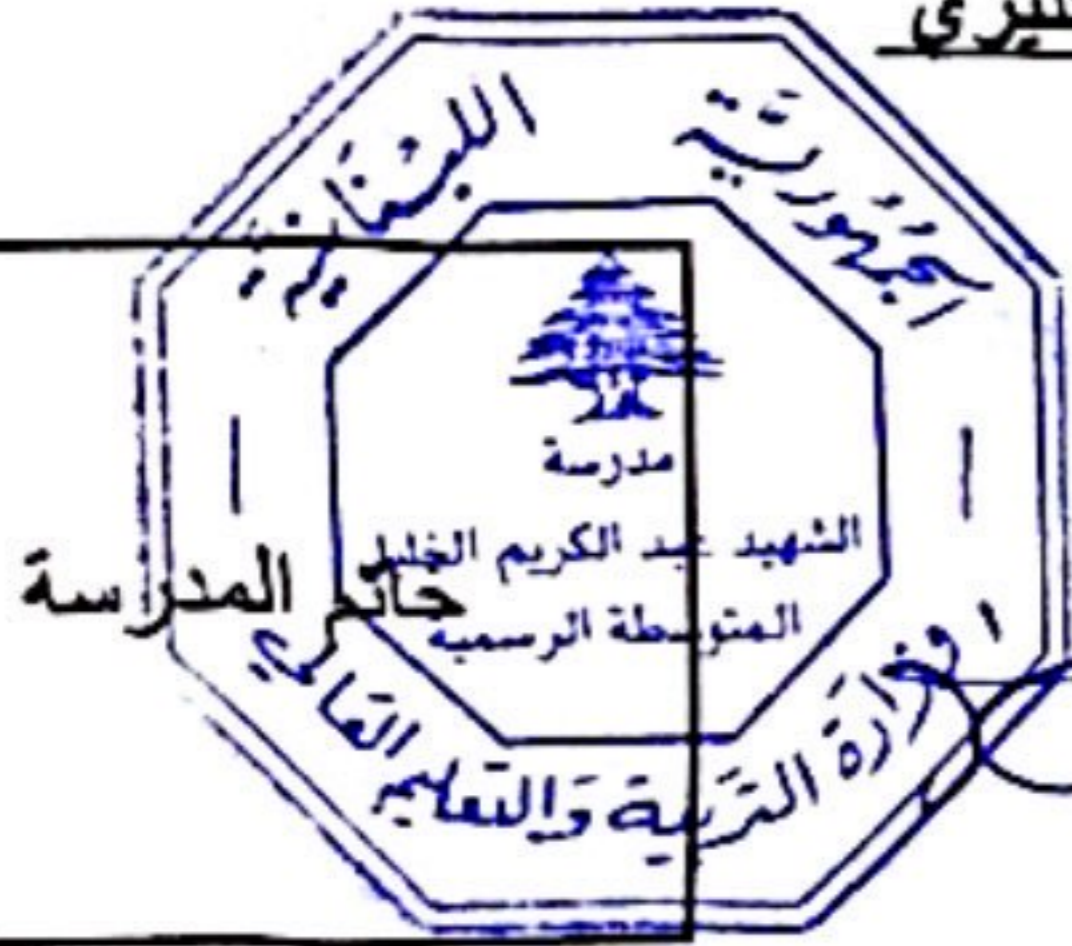 الجمهورية
اللبنانية
مدرسة
الشهيد عبد الكريم الخليل
المتوسطة الرسمية
خاتم المدرسة
وزارة التربية والتعليم العالي